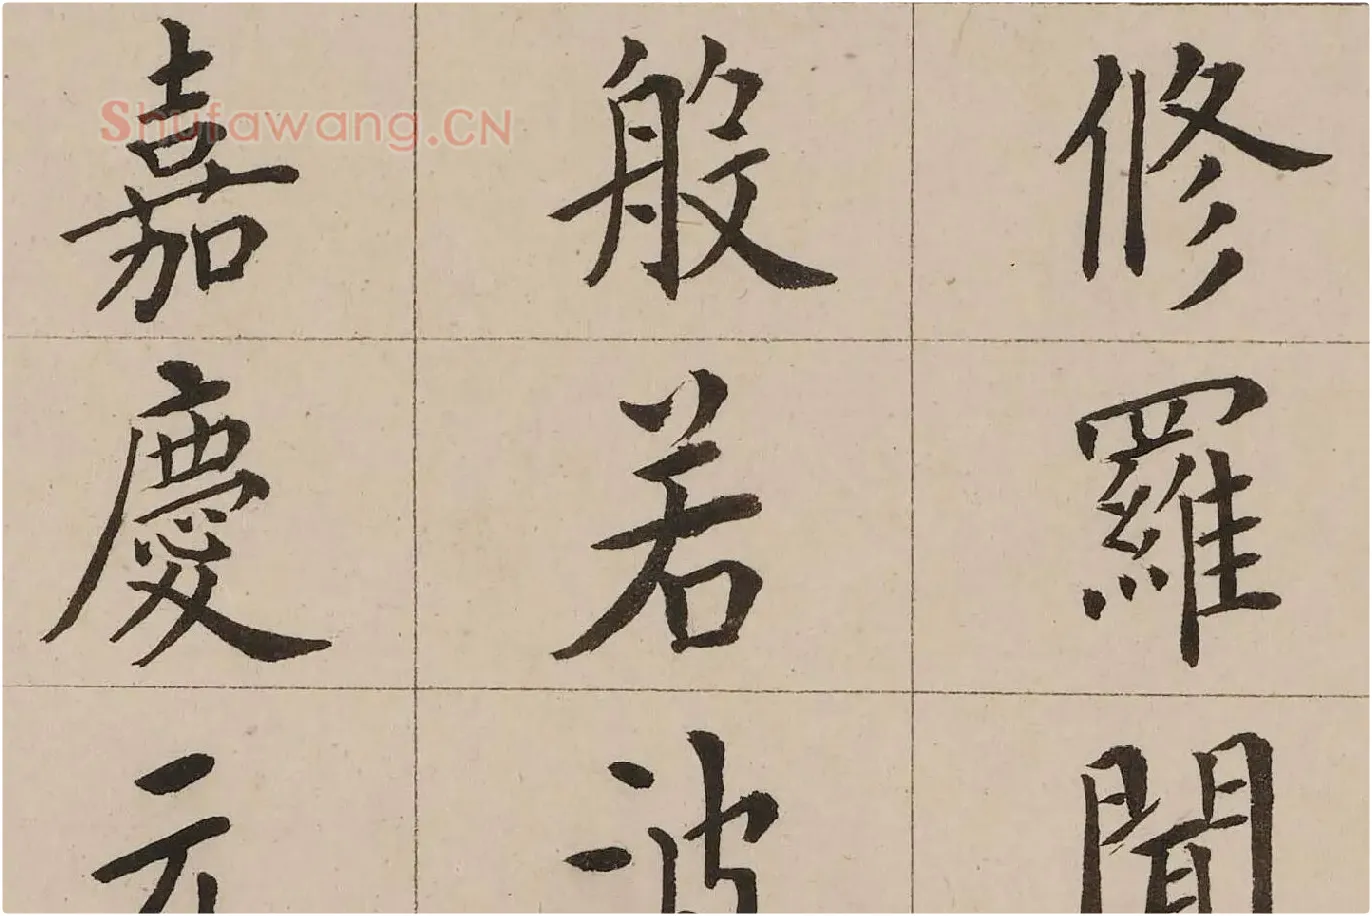 修羅聞
般若波
嘉慶元
Shufawang.CN